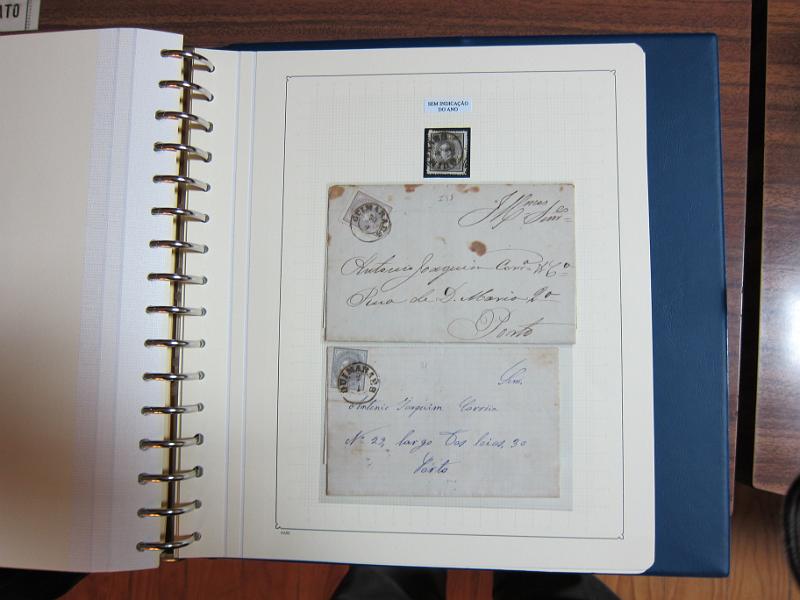 ATO
SEM INDICAÇÃO
DO ANO
GUIMARAES
Antonio Joaquim Corrª & Cª
Rua de D. Maria 2ª
Porto
GUIMARAES
Snr.
Antonio Joaquim Correia
Nº 22, largo dos loios, 30
Porto